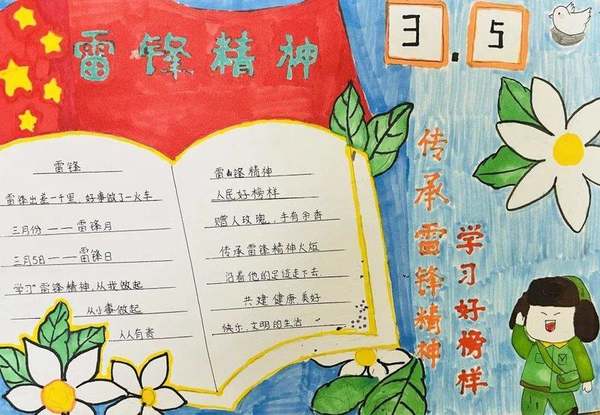 雷锋精神
3.5
雷锋
雷锋出差一千里，好事做了一火车
三月份——雷锋月
三月5日——雷锋日
学习雷锋精神，从我做起
从小事做起
人人有责
雷锋精神
人民好榜样
赠人玫瑰，手有余香
传承雷锋精神火炬
沿着他的足迹走下去
共建健康美好
快乐，文明的生活
传承雷锋精神
学习好榜样